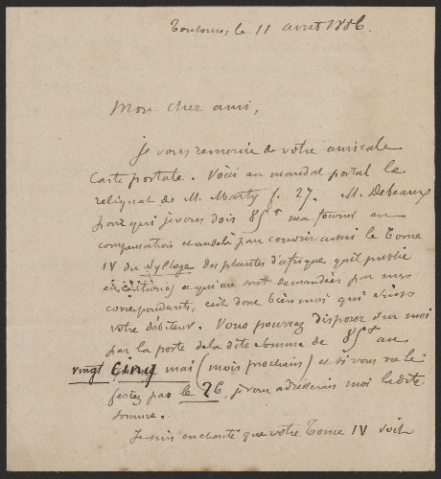 Toulouse, le 11 avril 1886.
Mon cher ami,
je vous remercie de votre amicale
Carte postale. Voici au mandat postal la
reliquat de M. Marty f. 27. M. Debeaux
pour qui je vous dois 85 ft m'a fourni en
compensation
IV du Sylloge des plantes d'afrique qu'il publie
et qui me sont demandées par mes
correspondants, c'est donc bien moi qui
votre débiteur. Vous pourrez disposer sur moi
par la poste de la dite somme de 85 ft au
vingt cinq mai (mois prochain) et si vous ne le
faites pas le 26, je vous adresserais moi la dite
somme.
Je suis enchanté que votre Tome IV soit